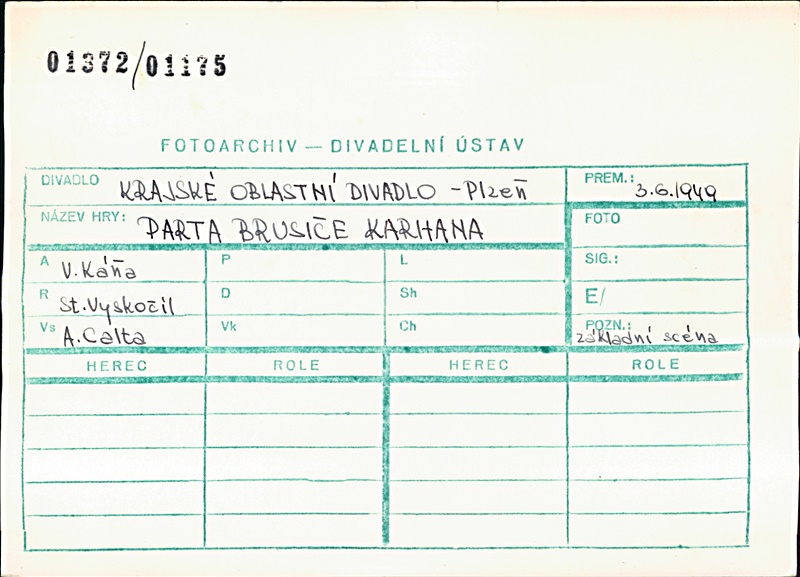 01372/01175
FOTOARCHIV — DIVADELNÍ ÚSTAV
DIVADLO KRAJSKÉ OBLASTNÍ DIVADLO - Plzeň
PREM.: 3.6.1949
NÁZEV HRY: PARTA BRUSIČE KARHANA
FOTO
A V. Káňa P L SIG.:
R St. Vyskočil D Sh E/
Vs A. Calta Vk Ch POZN.: základní scéna
HEREC ROLE HEREC ROLE